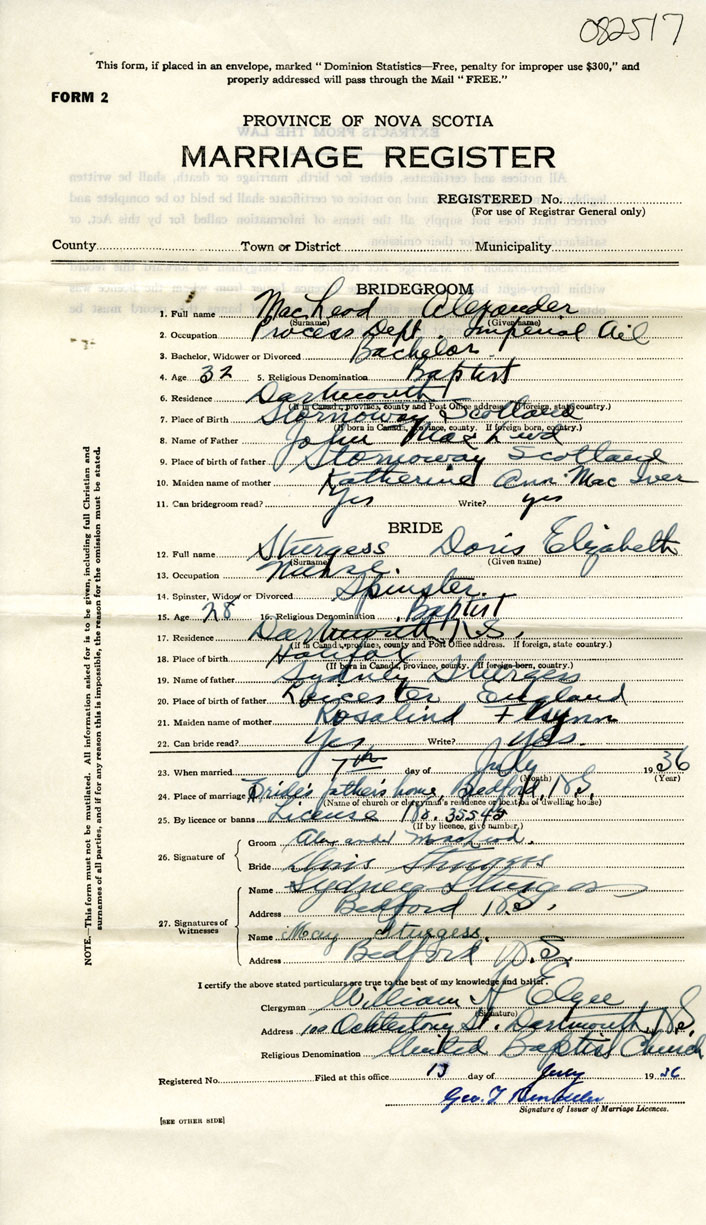 082517
This form, if placed in an envelope, marked "Dominion Statistics—Free, penalty for improper use $300," and
properly addressed will pass through the Mail "FREE."
FORM 2
PROVINCE OF NOVA SCOTIA
MARRIAGE REGISTER
REGISTERED No.
(For use of Registrar General only)
County Town or District Municipality
BRIDEGROOM
1. Full name MacLeod Alexander
(Surname) (Given name)
2. Occupation Process Dept. Imperial Oil
3. Bachelor, Widower or Divorced Bachelor
4. Age 32 5. Religious Denomination Baptist
6. Residence Dartmouth
(If in Canada, province, county and Post Office address. If foreign, state country.)
7. Place of Birth Stornoway Scotland
(If born in Canada, province, county. If foreign born, country.)
8. Name of Father John MacLeod
9. Place of birth of father Stornoway Scotland
10. Maiden name of mother Katherine Ann MacIver
11. Can bridegroom read? Yes Write? yes
BRIDE
12. Full name Sturgess Doris Elizabeth
(Surname) (Given name)
13. Occupation Nurse.
14. Spinster, Widow or Divorced Spinster.
15. Age 28 16. Religious Denomination Baptist
17. Residence Dartmouth N.S.
(If in Canada, province, county and Post Office address. If foreign, state country.)
18. Place of birth Halifax
(If born in Canada, province, county. If foreign-born, country.)
19. Name of father Sydney Sturgess
20. Place of birth of father Leicester England
21. Maiden name of mother Rosalind Flynn
22. Can bride read? Yes Write? Yes.
23. When married 7th day of July 1936
(Month) (Year)
24. Place of marriage Bride's father's home, Bedford, N.S.
(Name of church or clergyman's residence or location of dwelling house)
25. By licence or banns License No. 35545
(If by licence, give number,)
26. Signature of
Groom Alexander MacLeod.
Bride Doris Sturgess
27. Signatures of Witnesses
Name Sydney Sturgess
Address Bedford N.S.
Name May Sturgess.
Address Bedford N.S.
I certify the above stated particulars are true to the best of my knowledge and belief.
Clergyman William A Elgee
(Signature)
Address 100 Ochterlony St. Dartmouth, N.S.
Religious Denomination United Baptist Church
Registered No. Filed at this office 13 day of July 1936
Geo. T
Signature of Issuer of Marriage Licences.
[SEE OTHER SIDE]
NOTE.—This form must not be mutilated. All information asked for is to be given, including full Christian and
surnames of all parties, and if for any reason this is impossible, the reason for the omission must be stated.